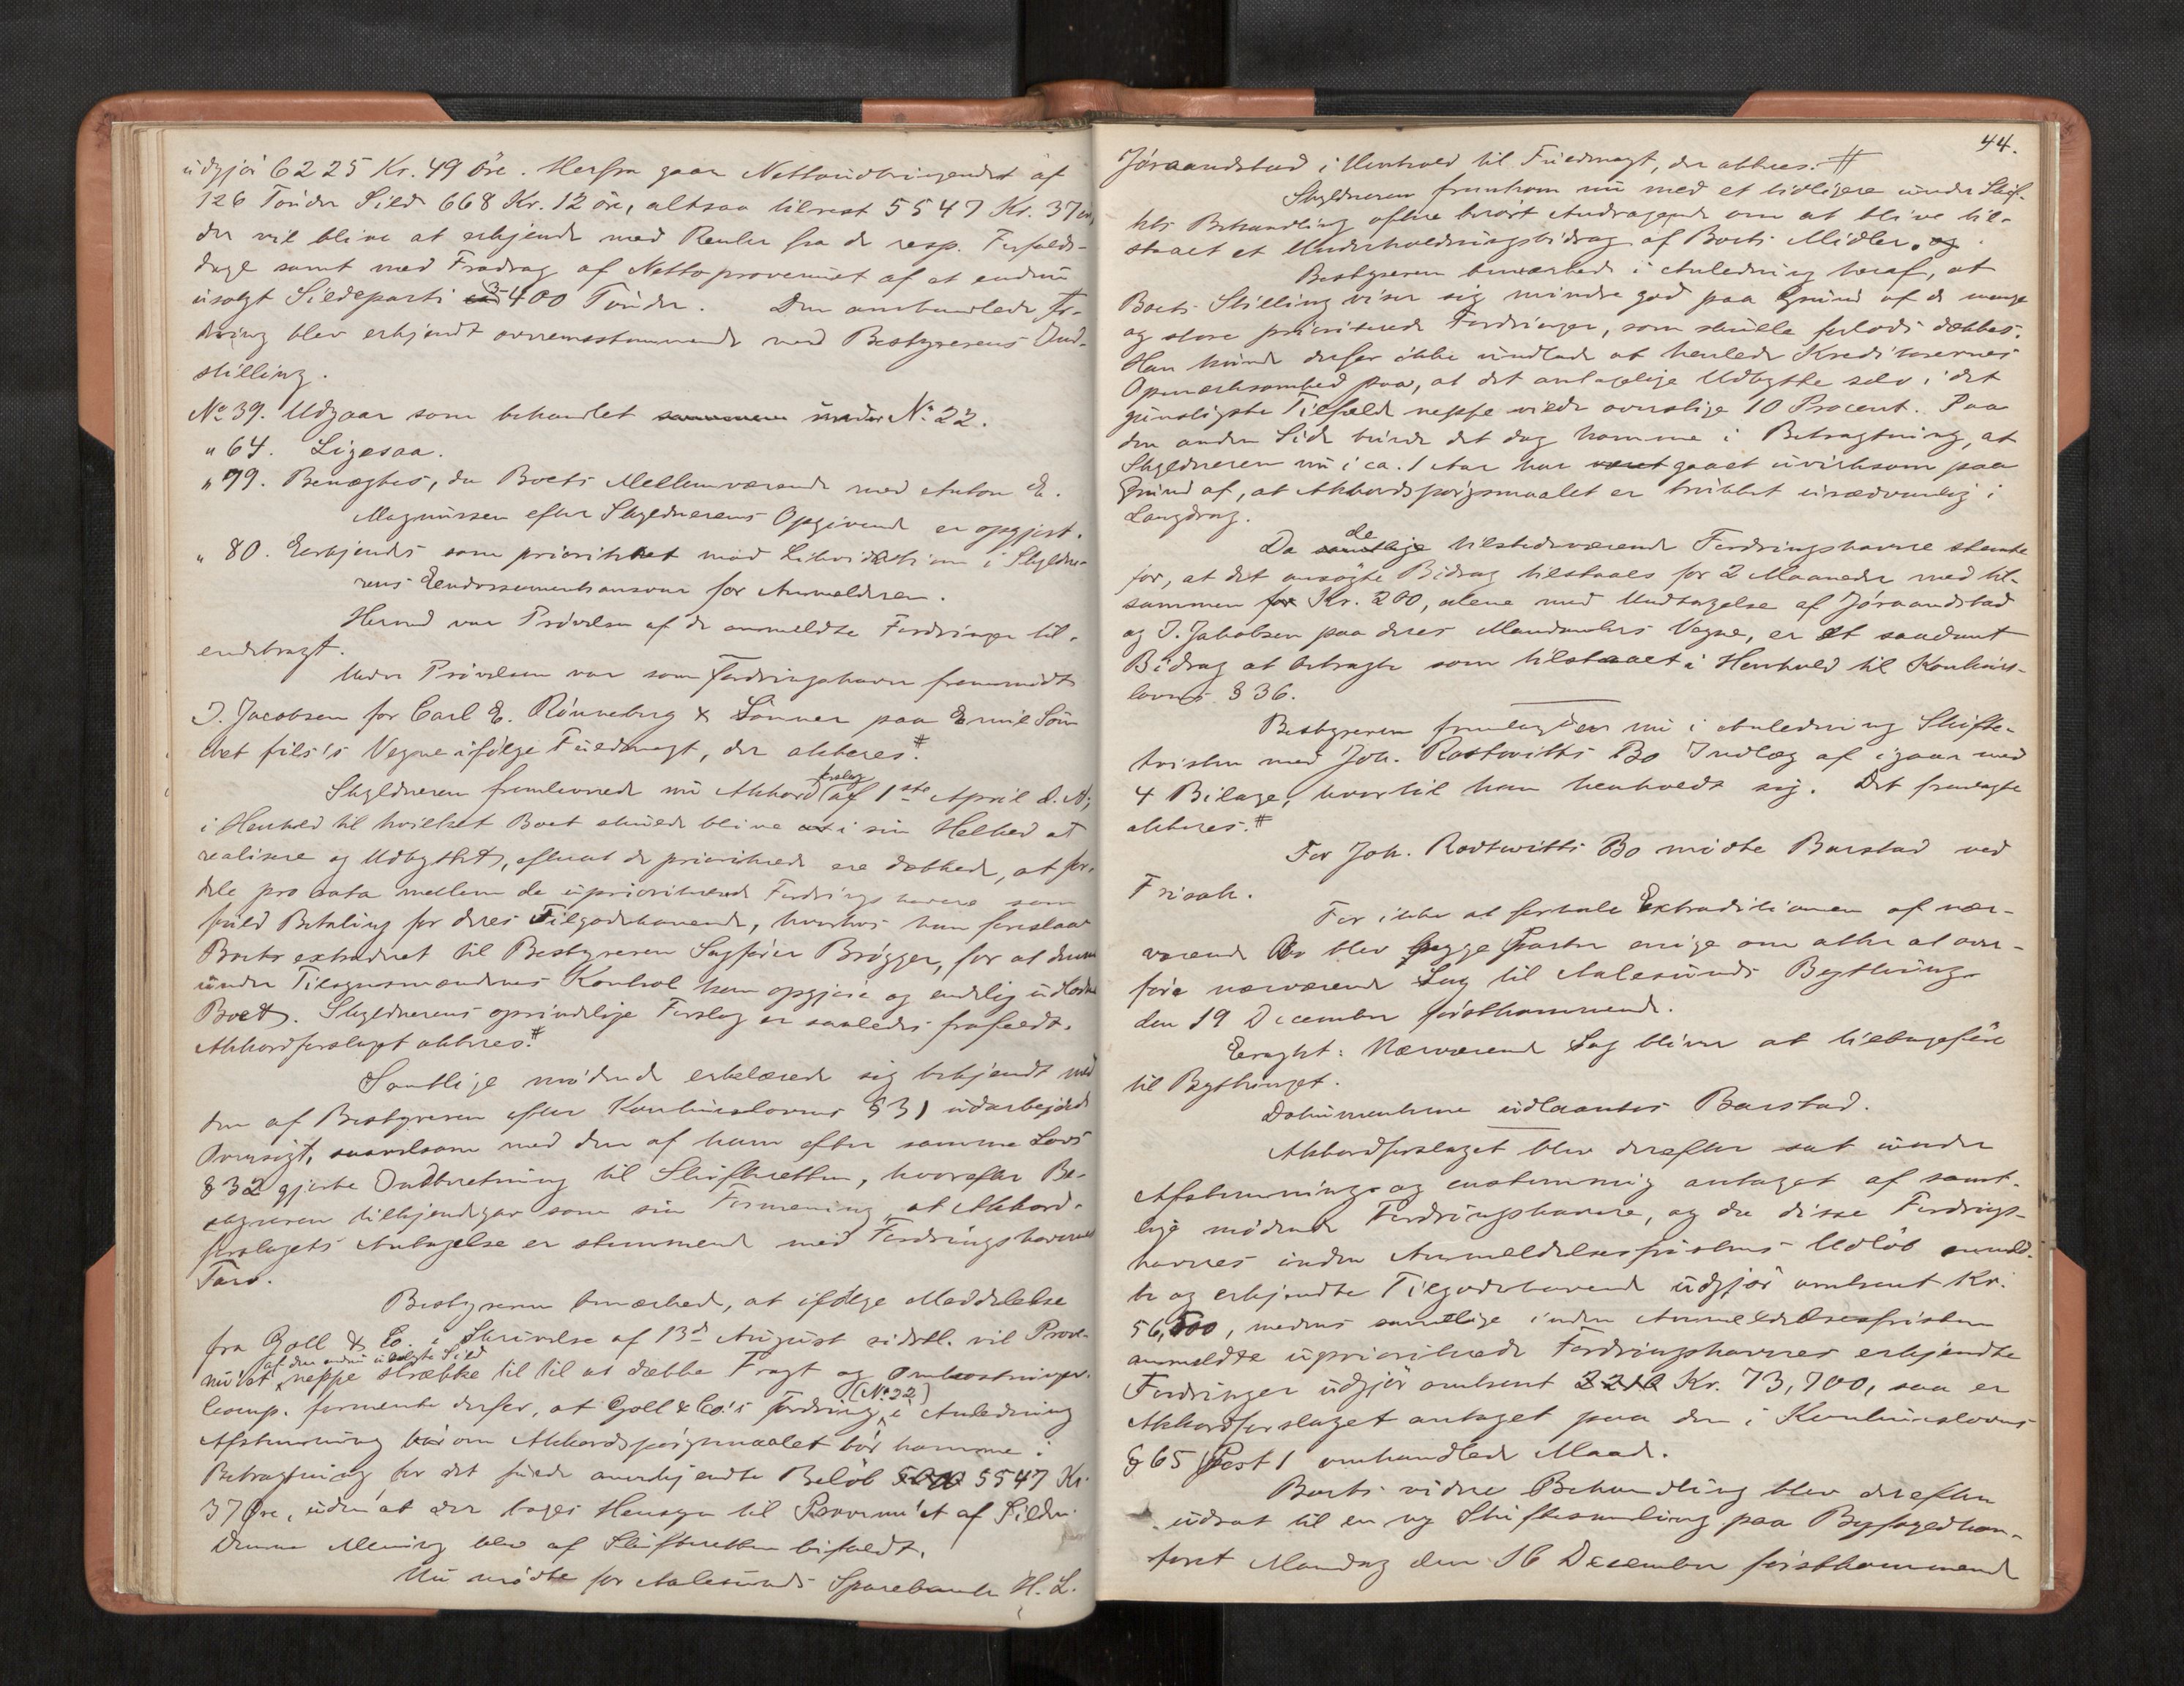 udgjør 6225 Kr. 49 Øre. Herfra gaar Nettoudbringendet af
126 Tønder Sild 668 Kr. 12 øre, altsaa tilrest 5547 Kr. 37 øre,
der vil blive at erkjende med Renter fra de resp. Forfalds-
dage samt med Fradrag af Nettoprovenuet af et endnu
usolgt Sildeparti 3-400 Tønder. Den omhandlede For-
dring blev erkjendt overensstemmende med Bestyrerens Ind-
stilling.
No 39. Udgaar som behandlet sammen under No 22.
" 64. Ligesaa.
" 79. Benægtes, da Boets Mellemværende med Anton E.
Magnussen efter Skyldnerens Opgivende er opgjort.
" 80. Erkjendes som prioritetet mod Likvidation i Skyldne-
rens Endossementansvar for Anmelderen.
Hermed var Prøvelsen af de anmeldte Fordringer til-
endebragt.
Under Prøvelsen var som Fordringshaver fremmødt
I. Jacobsen for Carl E. Rønneberg & Sønner paa Emile Sou
chet fils's Vegne ifølge Fuldmagt, der akteres. #
Skyldneren fremleverede nu Akkordforslag af 1ste April d. A.,
i Henhold til hvilket Boet skulde blive at i sin Helhed at
realisere og Udbyttet, efterat de prioriterede ere dækkede, at for-
dele pro rata mellem de uprioriterede Fordringshavere som
fuld Betaling for deres Tilgodehavende, hvorhos han foreslaar
Boets extraderet til Bestyreren Sagfører Brøgger, for at denne
under Tilsynsmændenes Kontrol kan opgjøre og endelig udlodde
Boet. Skyldnerens oprindelige Forslag er saaledes frafaldt.
Akkordforslaget akteres. #
Samtlige mødende erklærede sig bekjendt med
den af Bestyreren efter Konkurslovens § 31 udarbeidede
Oversigt, saavelsom med den af ham efter samme Lovs
§ 32 gjorte Indberetning til Skifteretten, hvorefter Be-
styreren tilkjendegav som sin Formening, at Akkord-
forslagets Antagelse er stemmende med Fordringshavernes
Tarv.
Bestyreren bemærkede, at ifølge Meddelelse
fra Goll & Co. i Skrivelse af 13de August sidstl. vil Prove-
nuet af den endnu usolgte Sild neppe strække til til at dække Fragt og Omkostninger.
Comp. formente derfor, at Goll & Co.'s Fordring (No 22) i Anledning
Afstemning bør om Akkordspørgsmaalet bør komme i
Betragtning for det fulde anerkjendte Beløb 5547 Kr.
37 Øre, uden at der tages Hensyn til Provenuet af Silden.
Denne Mening blev af Skifteretten bifaldt.
Nu mødte for Aalesunds Sparebank H. L.
44.
Jøraandstad i Henhold til Fuldmagt, der akteres. #
Skyldneren fremkom nu med et tidligere under Skif-
tets Behandling oftere berørt Andragende om at blive til-
staaet et Underholdningsbidrag af Boets Midler. og
Bestyreren bemærkede i Anledning heraf, at
Boets Stilling viser sig mindre god paa Grund af de mange
og store prioriterede Fordringer, som skulle forlods dækkes.
Han kunde derfor ikke undlade at henlede Kreditorernes
Opmærksomhed paa, at det antagelige Udbytte selv i det
gunstigste Tilfælde neppe vilde overstige 10 Procent. Paa
den anden Side burde det dog komme i Betragtning, at
Skyldneren nu i ca. 1 Aar har været gaaet uvirksom paa
Grund af, at Akkordspørgsmaalet er trukket usædvanlig i
Langdrag.
Da samtlige de tilstedeværende Fordringshavere stemte
for, at det ansøgte Bidrag tilstaaes for 2 Maaneder med til-
sammen for Kr. 200, alene med Undtagelse af Jøraandstad
og I. Jakobsen paa deres Mandanters Vegne, er et saadant
Bidrag at betragte som tilstaaet i Henhold til Konkurs-
lovens § 36.
Bestyreren fremlagde nu i Anledning Skifte-
tvisten med Joh. Rodtwitts Bo Indlæg af igaar med
4 Bilage, hvortil han henholdt sig. Det fremlagte
akteres. #
For Joh. Rodtwitts Bo mødte Barstad ved
Frisak.
For ikke at forhale Extraditionen af nær-
værende Bo blev begge Parter enige om atter at over-
føre nærværende Sag til Aalesunds Bything
den 19 December førstkommende.
Eragtet: Nærværende Sag bliver at tilbageføre
til Bythinget.
Dokumenterne udlaantes Barstad.
Akkordforslaget blev derefter sat under
Afstemning og enstemmig antaget af samt-
lige mødende Fordringshavere, og da disse Fordrings-
haveres inden Anmeldelsesfristens Udløb anmeld-
te og erkjendte Tilgodehavende udgjør omtrent Kr.
56,500, medens samtlige inden Anmeldelsesfristen
anmeldte uprioriterede Fordringshaveres erkjendte
Fordringer udgjør omtrent Kr. 73,700, saa er
Akkordforslaget antaget paa den i Konkurslovens
§ 65 Post 1 omhandlede Maade.
Boets videre Behandling blev derefter
udsat til en ny Skiftesamling paa Byfogedkon-
toret Mandag den 16 December førstkommende